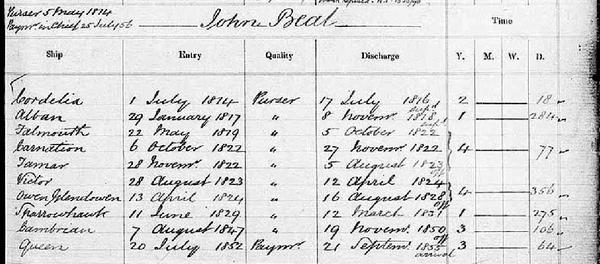 Purser 5 May 1814
Paymr. in Chief 25 July 56
John Beal
Time
Ship Entry Quality Discharge Y. M. W. D.
Cordelia 1 July 1814 Purser 17 July 1816 2 — — 18
Alban 29 January 1817 " 8 Novemr. 1818 1 — — 284
Falmouth 22 May 1819 " 5 October 1822
Carnation 6 October 1822 " 27 Novemr. 1822 4 — — 77
Tamar 28 Novemr. 1822 " 5 August 1823
Victor 28 August 1823 " 12 April 1824
Owen Glendower 13 April 1824 " 16 August 1828 4 — — 356
Sparrowhawk 11 June 1829 " 12 March 1831 1 — — 275
Cambrian 7 August 1847 " 19 Novemr. 1850 3 — — 106
Queen 20 July 1852 Paymr. 21 Septemr. 1855 3 — — 64
arrival